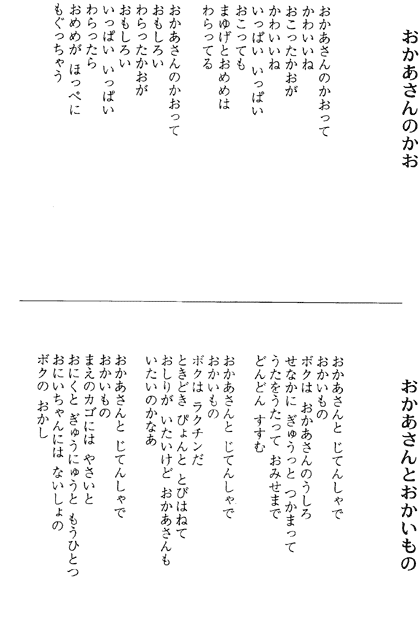 おかあさんのかお
おかあさんのかおって
かわいいね
おこったかおが
かわいいね
いっぱい いっぱい
おこっても
まゆげとおめめは
わらってる
おかあさんのかおって
おもしろい
わらったかおが
おもしろい
いっぱい いっぱい
わらったら
おめめが ほっぺに
もぐっちゃう
おかあさんとおかいもの
おかあさんと じてんしゃで
おかいもの
ボクは おかあさんのうしろ
せなかに ぎゅうっと つかまって
うたをうたって おみせまで
どんどん すすむ
おかあさんと じてんしゃで
おかいもの
ボクは ラクチンだ
ときどき ぴょんと とびはねて
おしりが いたいけど おかあさんも
いたいのかなあ
おかあさんと じてんしゃで
おかいもの
まえのカゴには やさいと
おにくと ぎゅうにゅうと もうひとつ
おにいちゃんには ないしょの
ボクの おかし